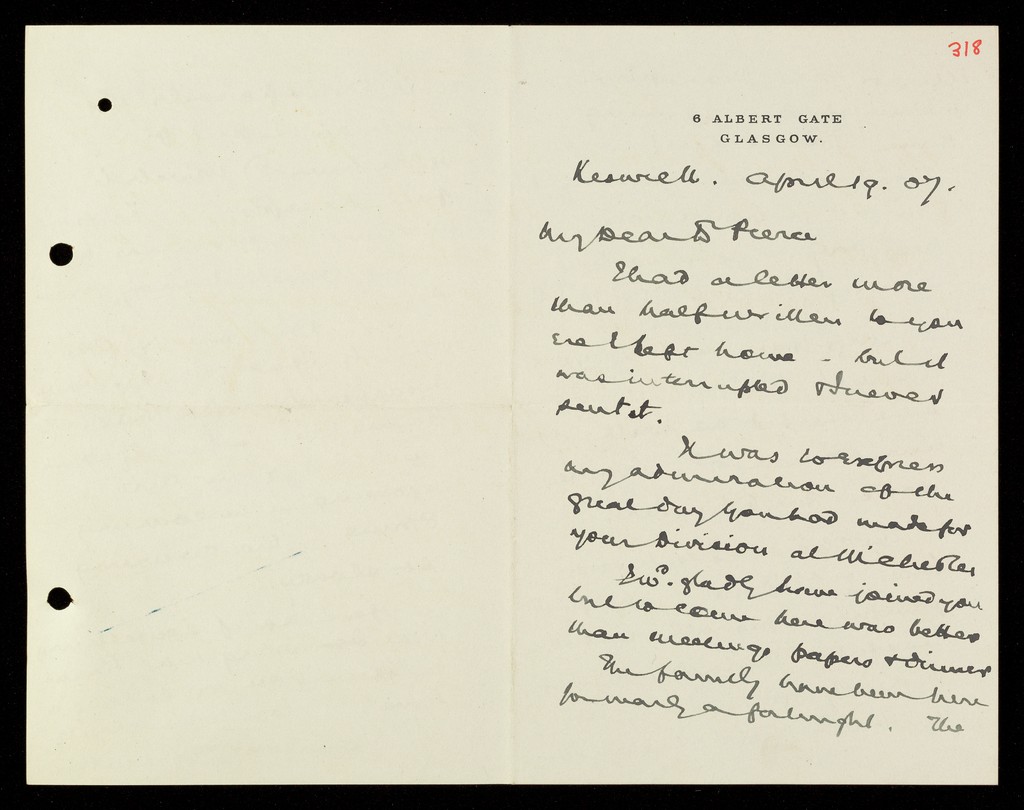 318
6 ALBERT GATE
GLASGOW.
April 19. 07.
My Dear Dr Pierce
I had a letter more
than half written to you
ere I left home - but it
was interrupted & I never
sent it.
It was to express
my admiration of the
great day you had made for
your Division at
I wd. gladly have joined you
but to come here was better
than meetings papers & dinner
The family have been here
for nearly a fortnight. The